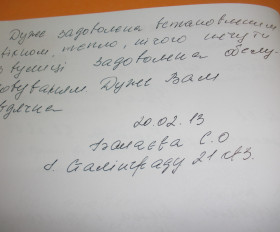 Дуже задоволена встановленим
вікном, тепло, нічого не чути
з вулиці задоволена обслу-
говуванням Дуже Вам
вдячна
20.02.13
С.О
Сталінграду 21 кв.